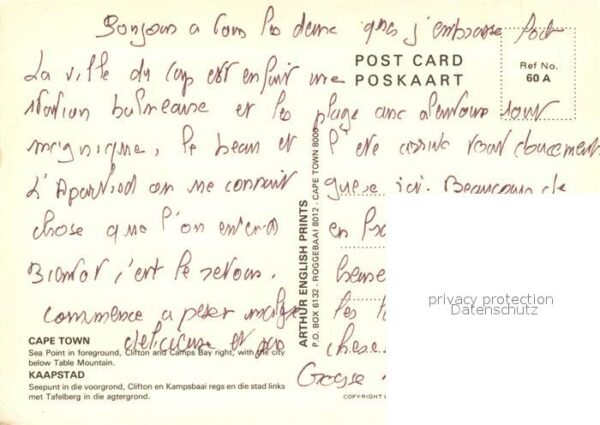 Bonjour a vous les deux que j'embrasse fort
POST CARD
POSKAART
Ref No.
60 A
La ville du Cap est en fait une
station balneaire et les plage aux alentours sont
magnifique, le beau et l'ete arrive tout doucement
L'Apartheid on ne connait guere ici. Beaucoup de
chose que l'on entend en
Bientot c'est le retour.
commence a peser malgre les
delicieuse et pas chese.
Grosse
ARTHUR ENGLISH PRINTS
P.O. BOX 6132 · ROGGEBAAI 8012 · CAPE TOWN 8000
privacy protection
Datenschutz
CAPE TOWN
Sea Point in foreground, Clifton and Camps Bay right, with the city
below Table Mountain.
KAAPSTAD
Seepunt in die voorgrond, Clifton en Kampsbaai regs en die stad links
met Tafelberg in die agtergrond.
COPYRIGHT